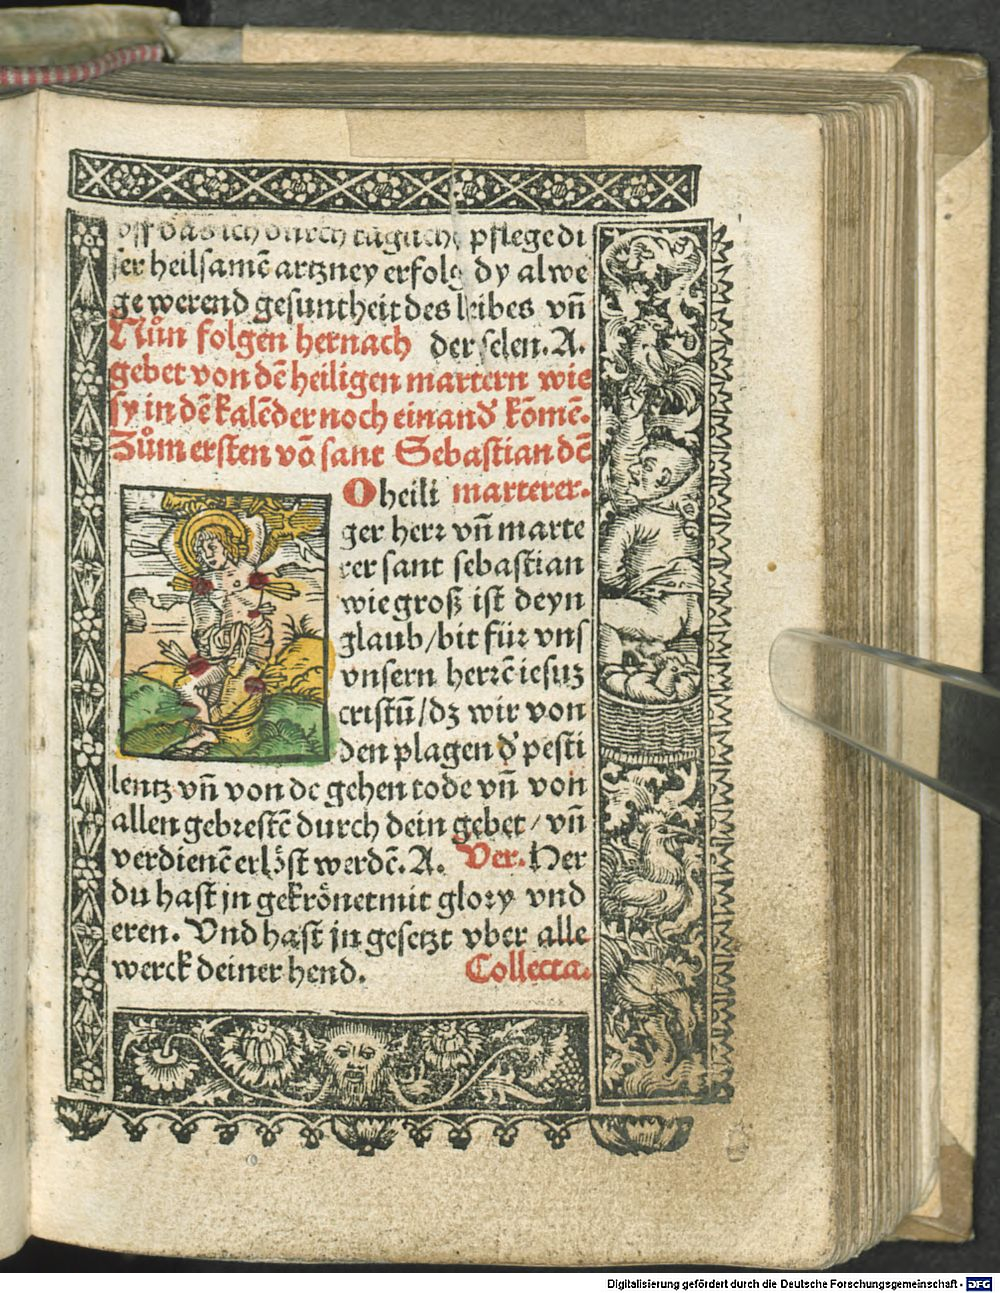 vff das ich durch täglich pflege di
ser heilsamē artzney erfolg dy alwe
ge werend gesuntheit des leibes vn̄
Nůn folgen hernach der selen. A.
gebet von dē heiligen martern wie
sy in dē kalēder noch einand' kōmē.
Zům ersten vō sant Sebastian dē
O heili marterer.
ger herr vn̄ marte
rer sant sebastian
wie groß ist deyn
glaub/bit für vns
vnsern herrē iesuz
cristū/dz wir von
den plagen d' pesti
lentz vn̄ von de gehen tode vn̄ von
allen gebrestē durch dein gebet / vn̄
verdienē erlöst werdē. A. Ver. Her
du hast jn gekrönet mit glory vnd
eren. Vnd hast jn gesetzt vber alle
werck deiner hend. Collecta.
Digitalisierung gefördert durch die Deutsche Forschungsgemeinschaft - DFG